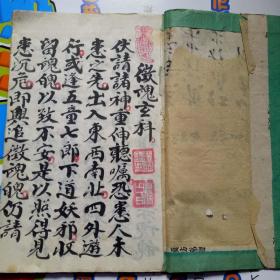 徵魂玄科
伏請諸神重伸聽属恐患人未
患之先土入東西南北四外遊
行或逢五童七郎下道妖邪收
留魂魄以致不安是以照得見
患沉疴即與追徵魂魄仍請